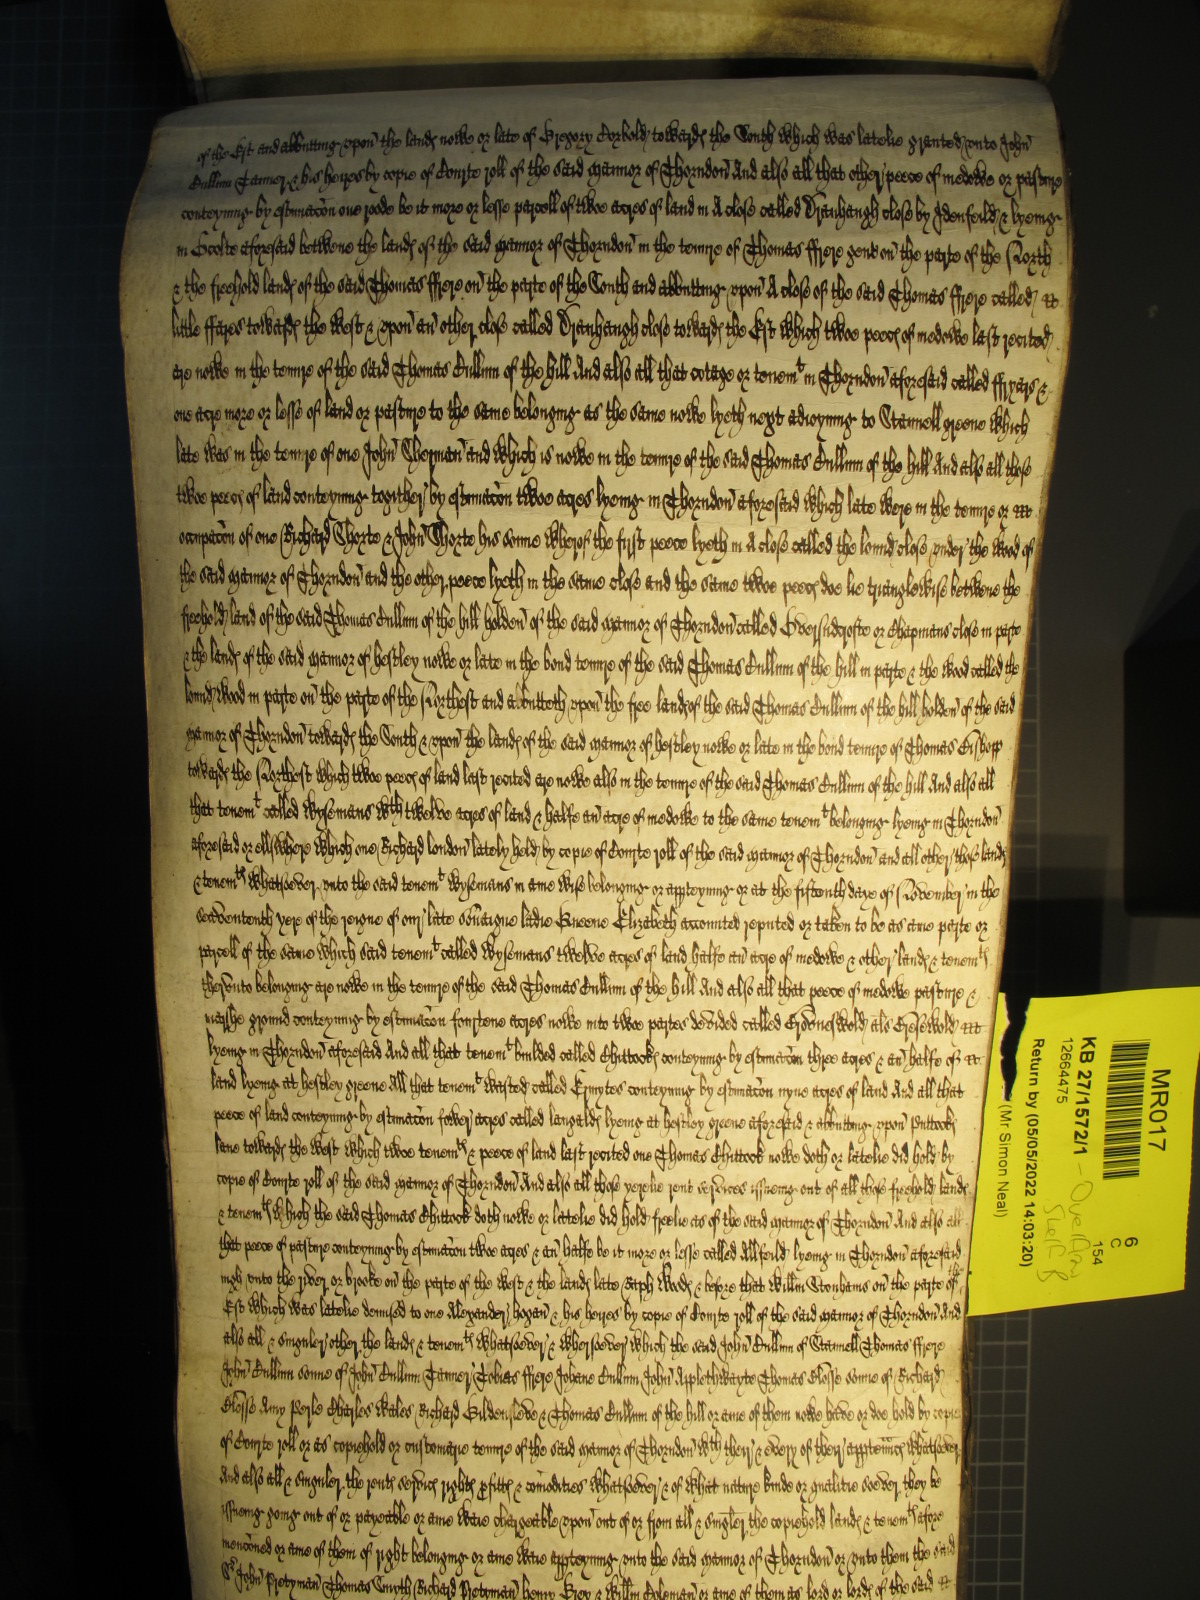 of the Est and abbutting upon the lands nowe or late of Gregory Corbold towards the South which was latelie graunted unto John
Cullum Tanner & his heires by copie of Courte roll of the said mannor of Thorndon And also all that other peece of medowe or pasture
conteyning by estimacon one roode be it more or lesse parcell of twoe acres of land in A close called Dranhaugh close by Idenfeild & lyeing
in Ocolte aforesaid betwene the lands of the said mannor of Thorndon in the tenure of Thomas ffrere gent on the parte of the North
& the freehold lands of the said Thomas ffrere on the parte of the South and abbutting upon A close of the said Thomas ffrere called
little ffares towards the West & upon an other close called Dranhaugh close towards the Est which twoe peeces of medowe last recited
are nowe in the tenure of the said Thomas Cullum of the hill And also all that cotage or tenemt in Thorndon aforesaid called ffryars &
one acre more or lesse of land or pasture to the same belonging as the same nowe lyeth next adioyning to Stannell greene which
late was in the tenure of one John Sherman and which is nowe in the tenure of the said Thomas Cullum of the hill And also all those
twoe peeces of land conteyning together by estimacon twoe acres lyeing in Thorndon aforesaid which late were in the tenure or
occupacon of one Richard Shorte & John Shorte his sonne wherof the first peece lyeth in A close called the lound close under the wood of
the said mannor of Thorndon and the other peece lyeth in the same close and the same twoe peeces doe lie trianglewise betwene the
freehold land of the said Thomas Cullum of the hill holden of the said mannor of Thorndon called Oversudcrofte or Chapmans close in parte
& the lands of the said mannor of hestley nowe or late in the bond tenure of the said Thomas Cullum of the hill in parte & the wood called the
lound wood in parte on the parte of the Northest and abutteth upon the free lands of the said Thomas Cullum of the hill holden of the said
mannor of Thorndon towards the South & upon the lands of the said mannor of hestley nowe or late in the bond tenure of Thomas Bishopp
towards the Northest which twoe peeces of land last recited are nowe also in the tenure of the said Thomas Cullum of the hill And also all
that tenemt called Wysemans wth twelve acres of land & halfe an acre of medowe to the same tenemt belonging lyeing in Thorndon
aforesaid or ellswhere which one Richard london lately held by copie of Courte roll of the said mannor of Thorndon and all other those lands
& tenemts whatsoever unto the said tenemt Wysemans in anie wise belonging or apperteyning or at the fiftenth daye of November in the
seavententh yere of the reigne of our late soveraigne ladie Queene Elizabeth accounted reputed or taken to be as anie parte or
parcell of the same which said tenemt called Wysemans twelve acres of land halfe an acre of medowe & other lands & tenemts
therunto belonging are nowe in the tenure of the said Thomas Cullum of the hill And also all that peece of medowe pasture &
marshe ground conteyning by estimacon fourtene acres nowe into twoe partes devided called als
lyeing in Thorndon aforesaid And all that tenemt builded called Chittocks conteyning by estimacon three acres & an halfe of
land lyeing at hestley greene All that tenemt wasted called Ermytes conteyning by estimacon nyne acres of land And all that
peece of land conteyning by estimacon fower acres called langalds lyeing at hestley greene aforesaid & abbutting upon Puttocks
lane towards the west which twoe tenemts & peece of land last recited one Thomas Chittock nowe doth or latelie did hold by
copie of Courte roll of the said mannor of Thorndon And also all those yerelie rent services issueing out of all those freehold lands
& tenemts which the said Thomas Chittock doth nowe or latelie did hold freelie as of the said mannor of Thorndon And also all
that peece of pasture conteyning by estimacon twoe acres & an halfe be it more or lesse called Allfeild lyeing in Thorndon aforesaid
nigh unto the river or brooke on the parte of the West & the lands late Raph Woods & before that Willm Stonhams on the parte of the
Est which was latelie demised to one Alexander hogan & his heires by copie of Courte roll of the said mannor of Thorndon And
also all & singuler other the lands & tenemts whatsoever & wheresoever which the said John Cullum of Stannell Thomas ffrere
John Cullum sonne of John Cullum Tanner Tobias ffrere Johane Cullum John Applethwayte Thomas Blosse sonne of Richard
Blosse Amy Perle Charles Wales Richard Gildensleve & Thomas Cullum of the hill or anie of them nowe have or doe hold by copie
of Courte roll or as copiehold or customarie tenure of the said mannor of Thorndon wth their & every of their appurtenncs whatsoever
And also all & singuler the rents services rights profitts & comodities whatsoever & of what nature kinde or qualitie soever they be
issueing going out of or payeable or anie waie chargeable upon out of or from all & singler the copiehold lands & tenemts afore
mencioned or anie of them of right belonging or anie waie apperteyning unto the said mannor of Thorndon or unto them the said
Sr John Pretyman Thomas Smyth Richard Pretyman henry Grey & Willm Coleman or anie of them as lord or lords of the said
MR017
KB 27/1572/1 - Overflow Shelf 8
12664475
Return by (05/05/2022 14:03:20)
(Mr Simon Neal)
6
C
154